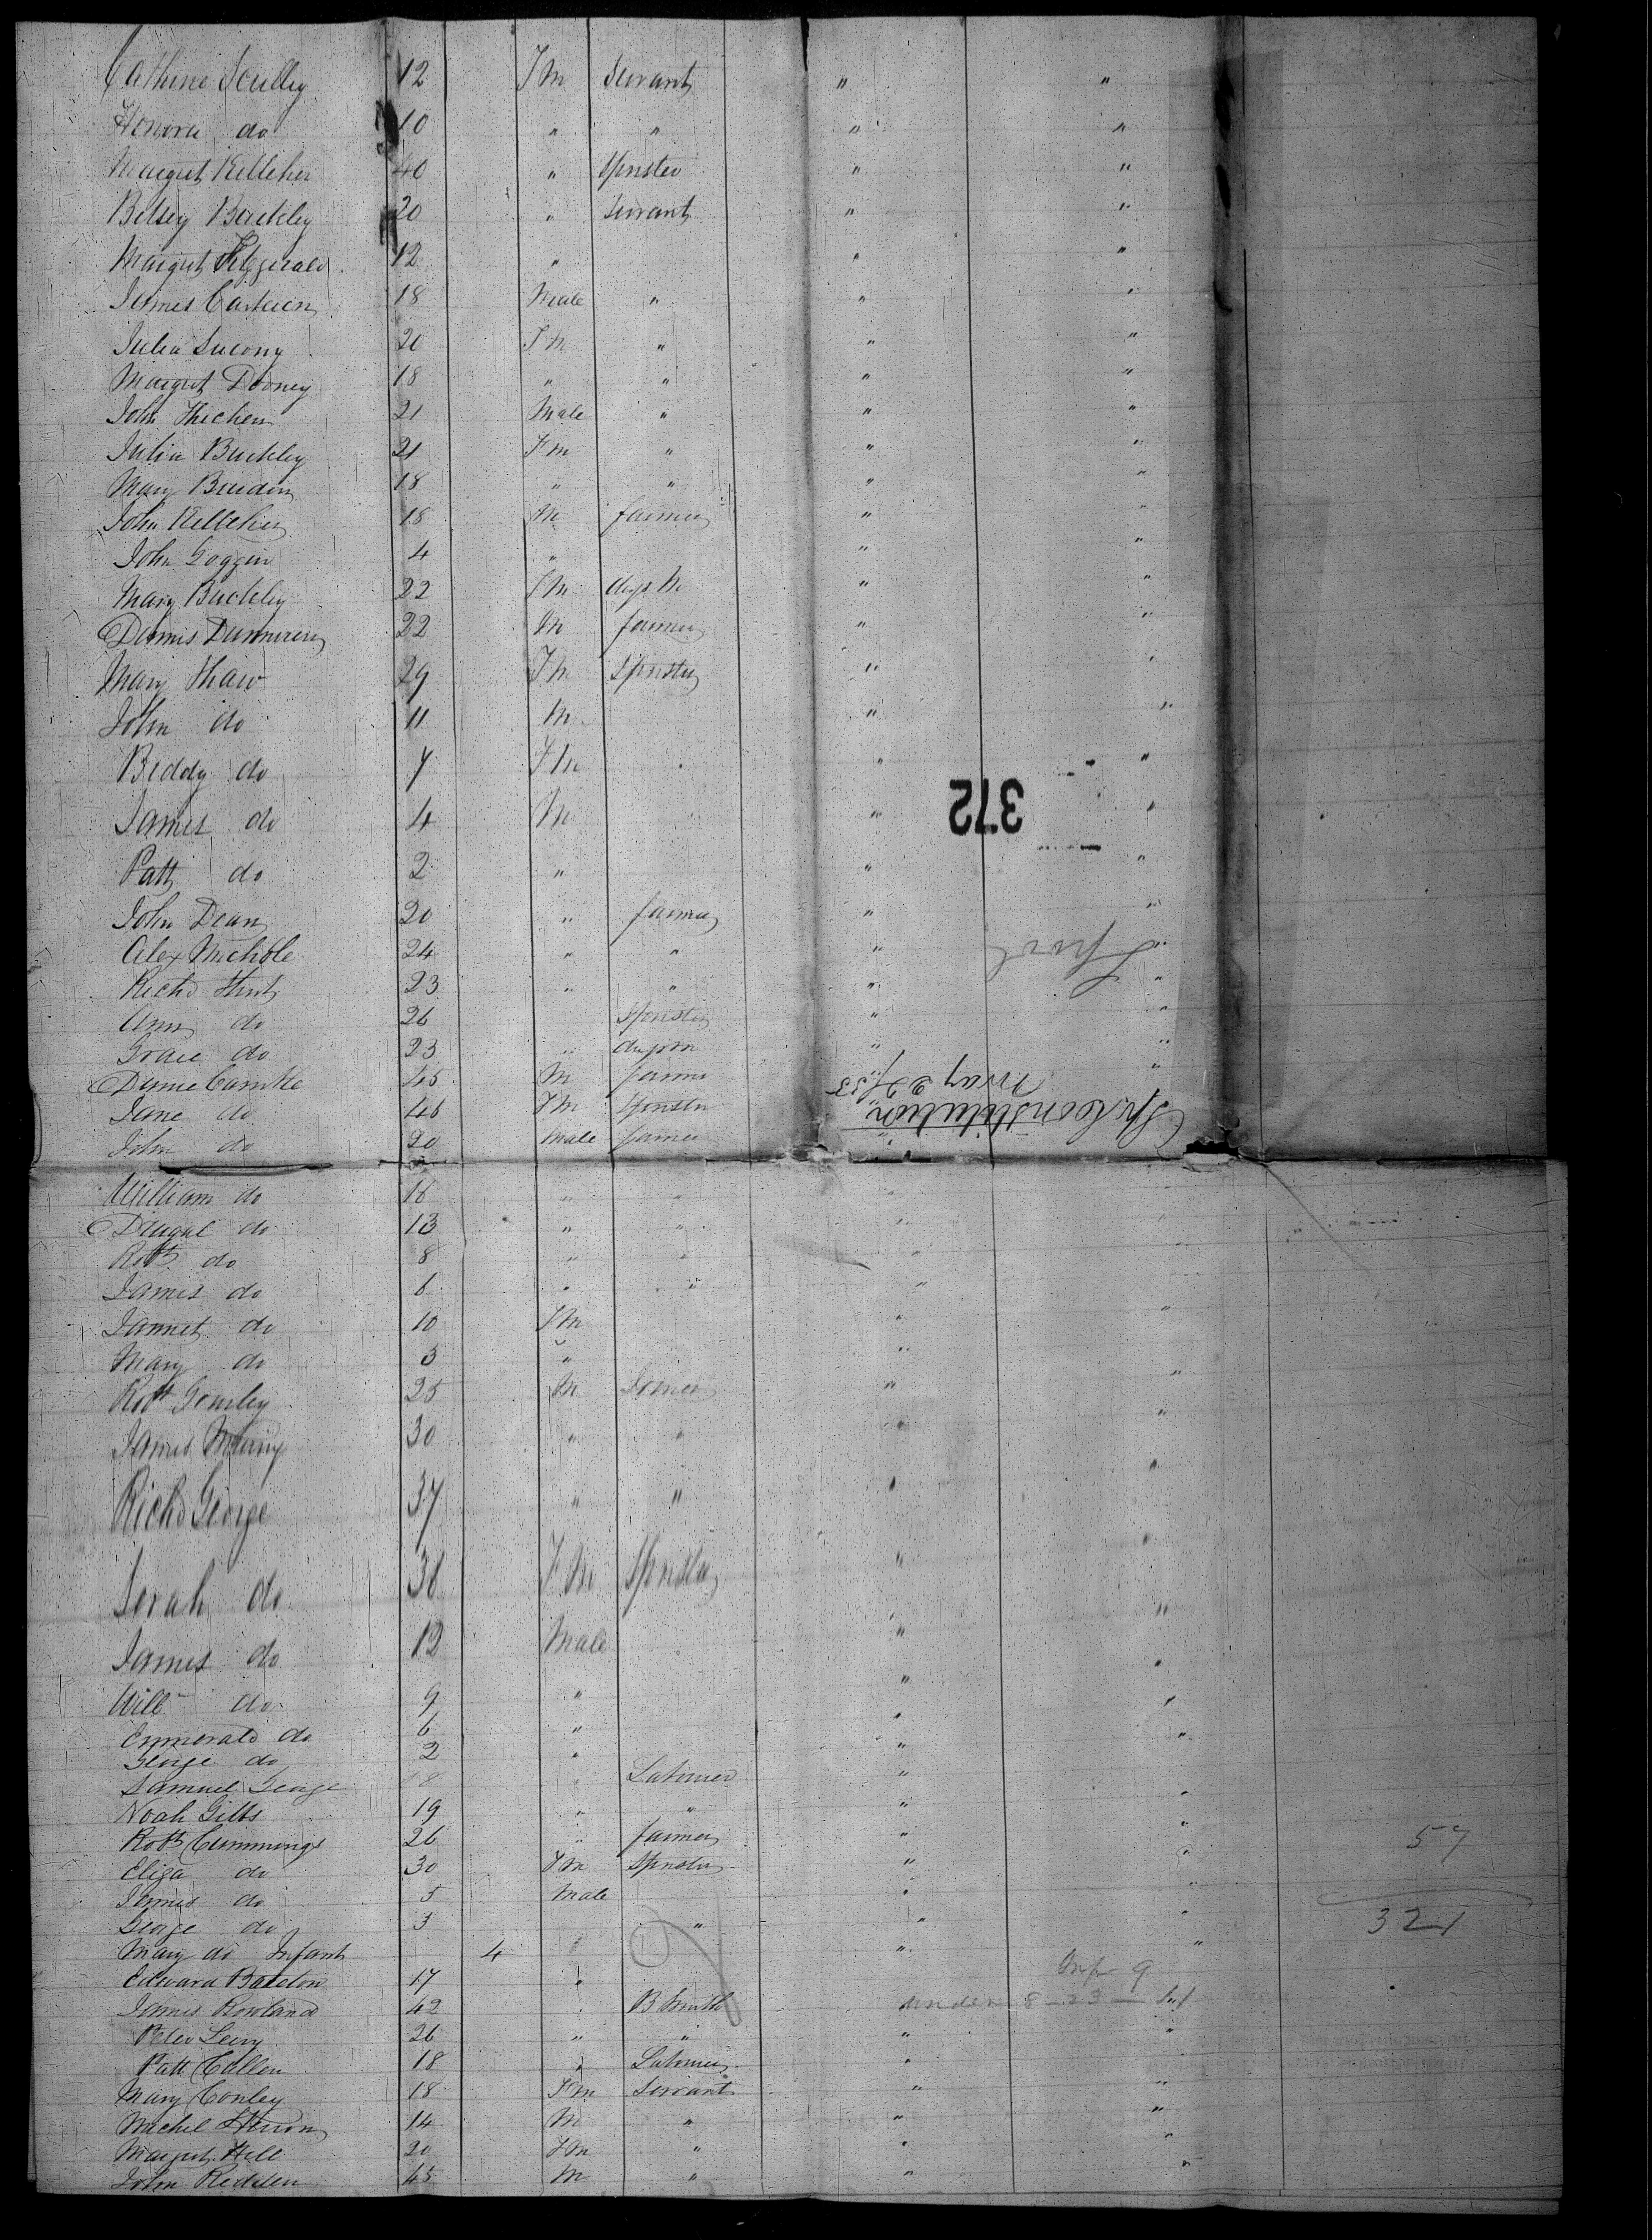 Cathrine Scully 12 Fm Servant " "
Honora do 10 " " " "
Margret Kelleher 40 " Spinster " "
Betsey Buckley 20 " Servant " "
Margret Fitzgerald 12 " " "
James 18 Male " " "
Julia 20 Fm " " "
Margret Dooney 18 " " " "
John 21 Male " " "
Julia Buckley 21 Fm " " "
Mary 18 " " " "
John Kelleher 18 M farmer " "
John Goggin 4 " " "
Mary Buckley 22 Fm " "
Dennis 22 M farmer " "
Mary Shaw 29 Fm Spinster " "
John do 11 M " "
Biddy do 7 Fm " "
James do 4 M " "
372
Patt do 2 " " "
John Dean 20 " farmer " "
Alex Nichole 24 " " " "
Lpool
Richd 23 " " " "
Ann do 26 Spinster " "
Grace do 23 " " "
45 M farmer "
Jane do 46 Fm Spinster
Shp Constitution
May 25/55
John do 20 Male farmer "
William do 16 " " "
Dugal do 13 " " "
Robt do 8 " " " "
James do 6 " " "
Jannet do 10 Fm " "
Mary do 3 " "
Robt Gourley 25 M " "
James 30 " " " "
Richd George 37 " " " "
Sarah do 36 Fm Spinster " "
James do 12 Male " "
Willm do 9 " " "
Emmerald do 6 " " "
George do 2 " " "
Samuel George 18 " Labourer "
Noah Gibbs 19 " " " "
Robt Cummings 26 " farmer " " 57
Eliza do 30 Fm Spinster " "
James do 5 Male " "
George do 3 " " " 321
Mary do Infant 4 " " "
Edward 17 " Inf 9
James Rowland 42 " B Smith under 8 - 23 - Inf
Peter Leery 26 " " " "
Patt Cullen 18 " Labourer "
Mary Conley 18 Fm Servant " "
Herron 14 M " " "
Margret Hill 20 Fm " " "
John Redden 45 M " " "